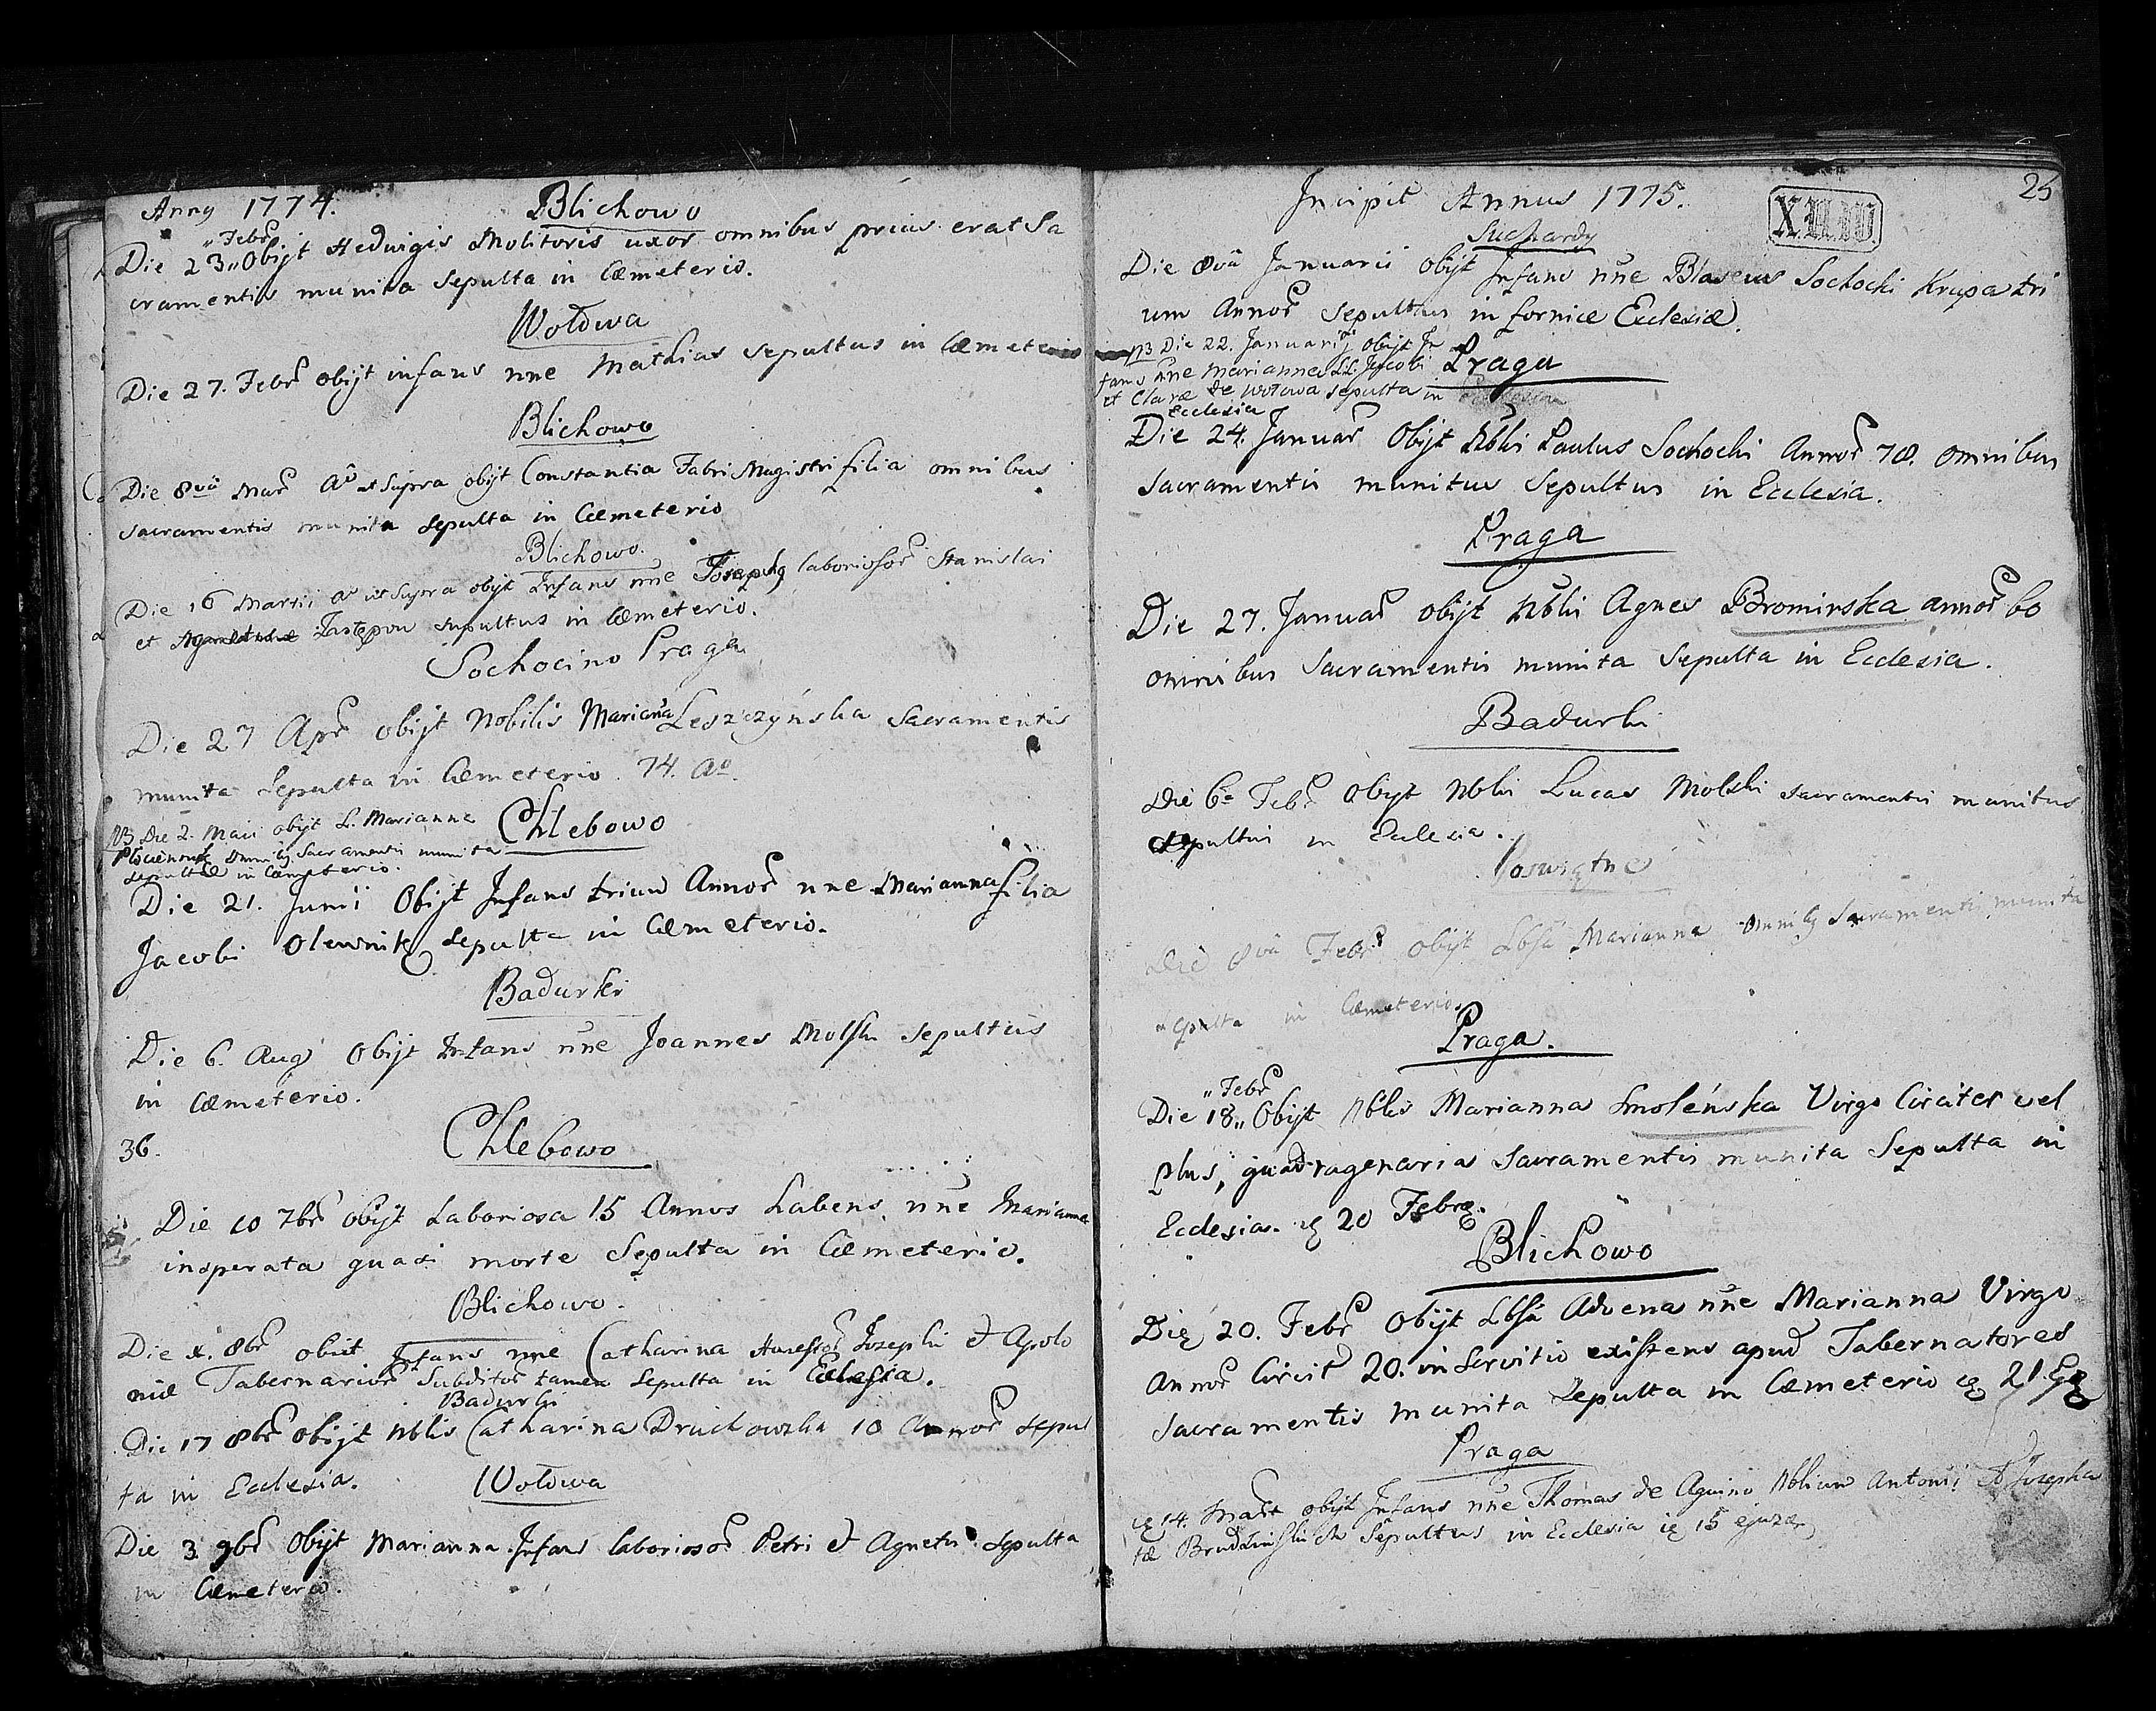 Anny 1774. Blichowo
Die 23 „Febr. Obijt Hedvigis Molitoris uxor omnibus prius erat Sa
cramentis munita Sepulta in Cæmeterio.
Wołowa
Die 27. Febr obijt infans nne Mathias Sepultus in Cæmeterio
Blichowo
Die 8va Mar Ao ut Supra obijt Constantia Fabri Magistri filia omnibus
sacramentis munita sepulta in Cæmeterio
Blichowo.
Die 16 Martii ao ut Supra obijt Infans nne Josephg laboriosor Stanislai
et Zastępow supultus in Cæmeterio.
Sochocino Praga
Die 27 Apr obijt Nobilis Marianna Leszczyńska Sacramentis
munita Sepulta in Cæmeterio. 74. Ao.
NB Die 2. Maii obijt L. Marianne Chlebowo
omnibg Sacramentis munita
sepultæ in Cæmeterio.
Die 21. Junii Obijt Infans trium Annor nne Marianna filia
Jacobi Olewnik sepulta in Cæmeterio.
Badurki
Die 6. Aug Obijt Infans nne Joannes Molski Sepultus
in Cæmeterio.
36. Chlebowo
Die 10 7br obijt Laboriosa 15 Annos Labens nne Marianna
insperata quasi morte Sepulta in Cæmeterio.
Blichowo.
Die x. 8br obiit Infans nne Catharina Josephi et Apolo
niæ Tabernarior Subditor tamen Sepulta in Eclesia.
Badurki
Die 17 8br obijt Nblis Catharina Druchowska 10 Annor sepul
ta in Ecclesia. Wołowa
Die 3 9br Obijt Marianna Infans laboriosor Petri et Agnetis Sepulta
in Cæmeterio.
25
Incipit Annus 1775.
X.U.W.
Suchardy
Die 8va Januarii obijt Infans nne Blaseius Sochocki Krupa tri
um Annor Sepultus in fornice Ecclesiæ.
NB Die 22. Januarij obijt In
fans nne Marianna LL. Jacobi Praga
et Claræ de Wołowa sepulta in
Ecclesia
Die 24. Januar Obijt Nblis Paulus Sochocki Annor 78. omnibus
Sacramentis munitus Sepultus in Ecclesia.
Praga
Die 27. Januar obijt Nblis Agnes Bromirska annor 60
omnibus Sacramentis munita Sepulta in Ecclesia.
Badurki
Die 6a Febr Obijt Nblis Lucas Molski sacramentis munitus
sepultus in Eclesia.
Poswiętne
Die 8va Febr obijt Lbsa Marianna omnibg Sacramentis munita
sepulta in Cæmeterio.
Praga.
Die 18 „Febr „ Obijt Nblis Marianna Smoleńska Virgo Circiter vel
plus, quadragenaria Sacramentis munita Sepulta in
Ecclesia. 20 Febr.
Blichowo
Die 20. Febr Obijt Lbsa Advena nne Marianna Virgo
Annor Circit 20. in Servitio existens apud Tabernatores
Sacramentis munita Sepulta in Cæmeterio 21.
Praga
14. Mart obijt Infans nne Thomas de Aquino Nblium Antonii et Josepha
tæ Sepultus in Ecclesia 15